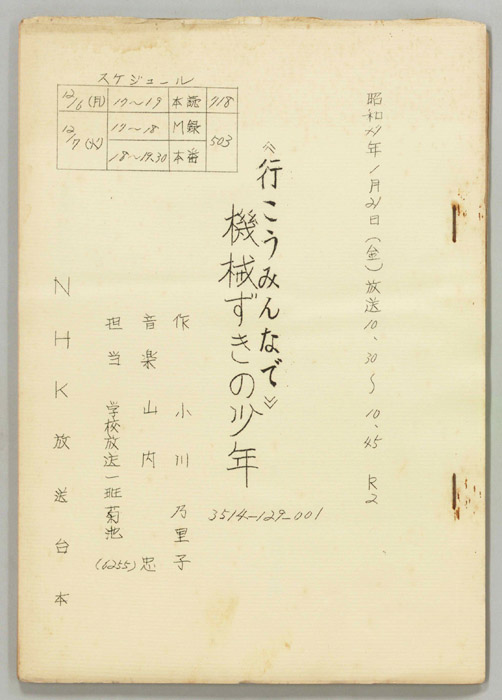 昭和47年1月21日(金)放送10.30〜10.45 R2
《行こうみんなで》
機械ずきの少年
3514-129-001
作 小川乃里子
音楽 山内 忠
担当 学校放送一班 菊池 (6255)
NHK放送台本
スケジュール
12/6(月) 17〜19 本読 718
12/7(火) 17〜18 M録 503
18〜19.30 本番